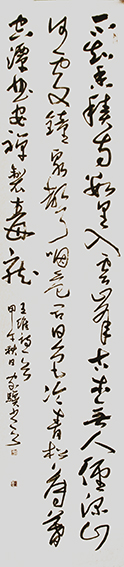 不知香積寺數里入雲峰古木無人徑深山
何處鐘泉聲咽危石日色冷青松薄暮
空潭曲安禪製毒龍
王維詩
甲午秋日